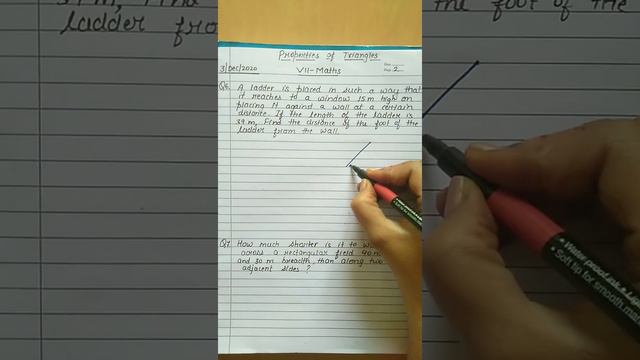 Properties of Triangles
3/Dec/2020
VII-Maths
Page 2
Q6. A ladder is placed in such a way that
it reaches to a window 15 m high on
placing it against a wall at a certain
distance. If the length of the ladder is
39 m, Find the distance of the foot of the
ladder from the wall.
Q7. How much shorter is it to
across a rectangular field 40 m
and 30 m breadth, than along two
adjacent sides ?
ladder from
the foot of the
Water proof ink
Soft tip for smooth